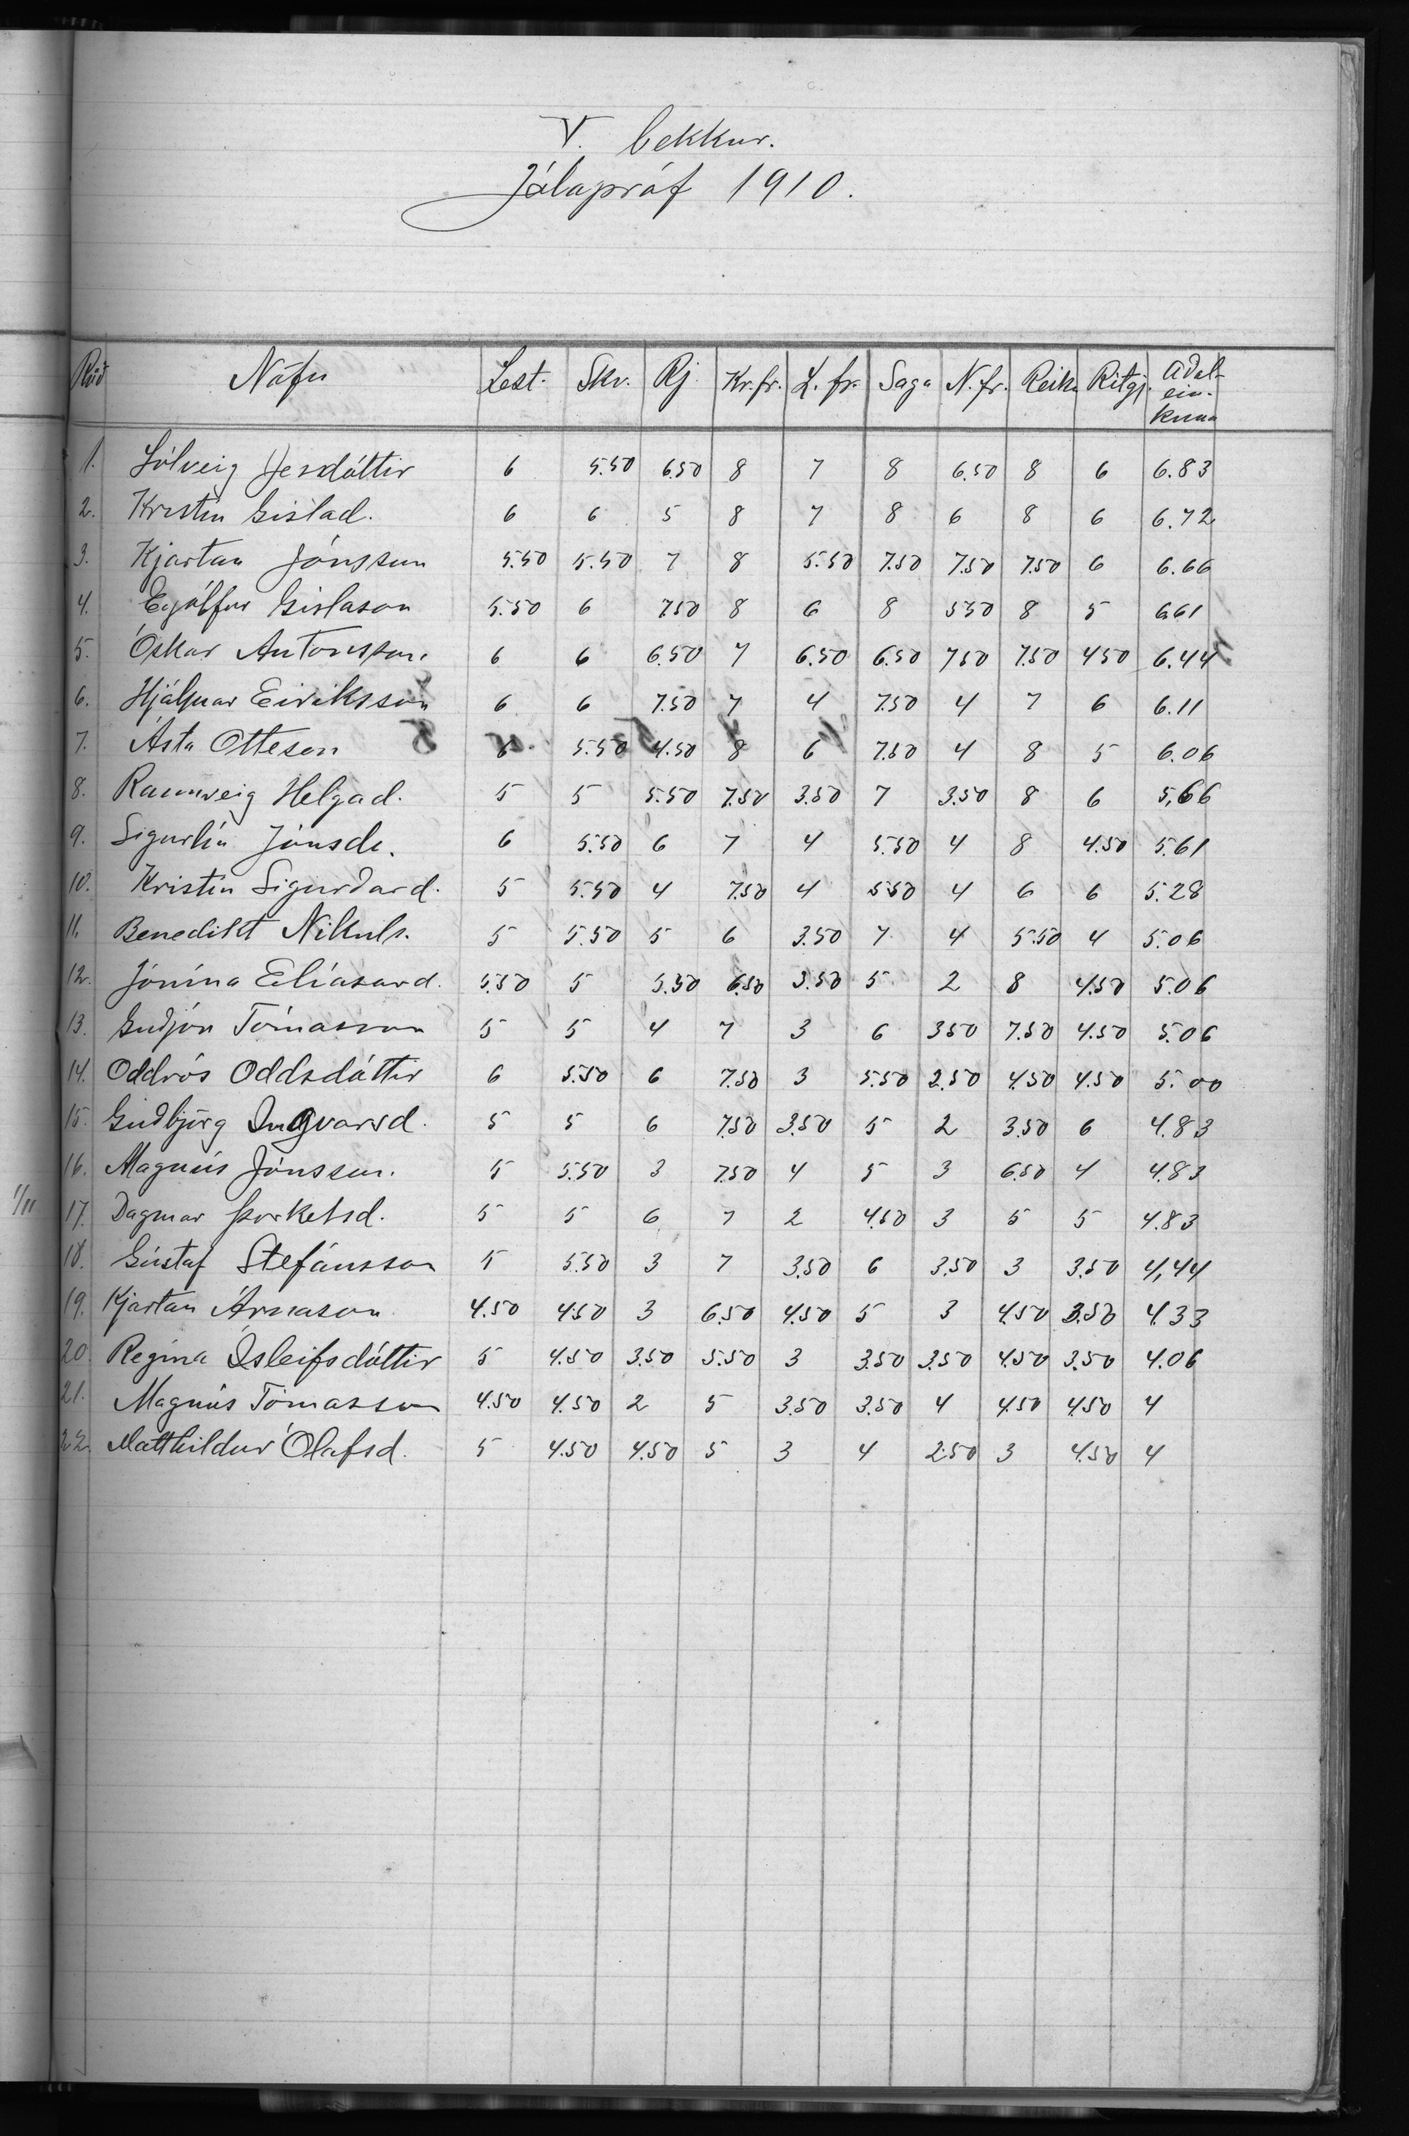 V. bekkur.
Jólapróf 1910.
Röð Nöfn Lest. Skr. Rj. Kr.fr. L.fr. Saga N.fr. Reik. Ritgj. Aðal-ein-kunn
1. Sólveig Jesdóttir 6 5.50 6.50 8 7 8 6.50 8 6 6.83
2. Kristín Gíslad. 6 6 5 8 7 8 6 8 6 6.72
3. Kjartan Jónsson 5.50 5.50 7 8 5.50 7.50 7.50 7.50 6 6.66
4. Eyjólfur Gíslason 5.50 6 7.50 8 6 8 5.50 8 5 6.61
5. Óskar Antonsson. 6 6 6.50 7 6.50 6.50 7.50 7.50 4.50 6.44
6. Hjálmar Eiriksson 6 6 7.50 7 4 7.50 4 7 6 6.11
7. Ásta Otteson 6 5.50 4.50 8 6 7.50 4 8 5 6.06
8. Rannveig Helgad. 5 5 5.50 7.50 3.50 7 3.50 8 6 5,66
9. Sigurlín Jónsd. 6 5.50 6 7 4 5.50 4 8 4.50 5.61
10. Kristín Sigurðard. 5 5.50 4 7.50 4 5.50 4 6 6 5.28
11. Benedikt Nikuls. 5 5.50 5 6 3.50 7 4 5.50 4 5.06
12. Jónína Elíasard. 5.50 5 5.50 6.50 3.50 5 2 8 4.50 5.06
13. Guðjón Tómasson 5 5 4 7 3 6 3.50 7.50 4.50 5.06
14. Oddrós Oddsdóttir 6 5.50 6 7.50 3 5.50 2.50 4.50 4.50 5.00
15. Guðbjörg Ingvarsd. 5 5 6 7.50 3.50 5 2 3.50 6 4.83
16. Magnús Jónsson. 5 5.50 3 7.50 4 5 3 6.50 4 4.83
17. Dagmar Þorkelsd. 5 5 6 7 2 4.50 3 5 5 4.83
18. Gústaf Stefánsson 5 5.50 3 7 3.50 6 3.50 3 3.50 4,44
19. Kjartan Árnason 4.50 4.50 3 6.50 4.50 5 3 4.50 3.50 4.33
20 Regína Ísleifsdóttir 5 4.50 3.50 5.50 3 3.50 3.50 4.50 3.50 4.06
21. Magnús Tómasson 4.50 4.50 2 5 3.50 3.50 4 4.50 4.50 4
22. Matthildur Ólafsd. 5 4.50 4.50 5 3 4 2.50 3 4.50 4